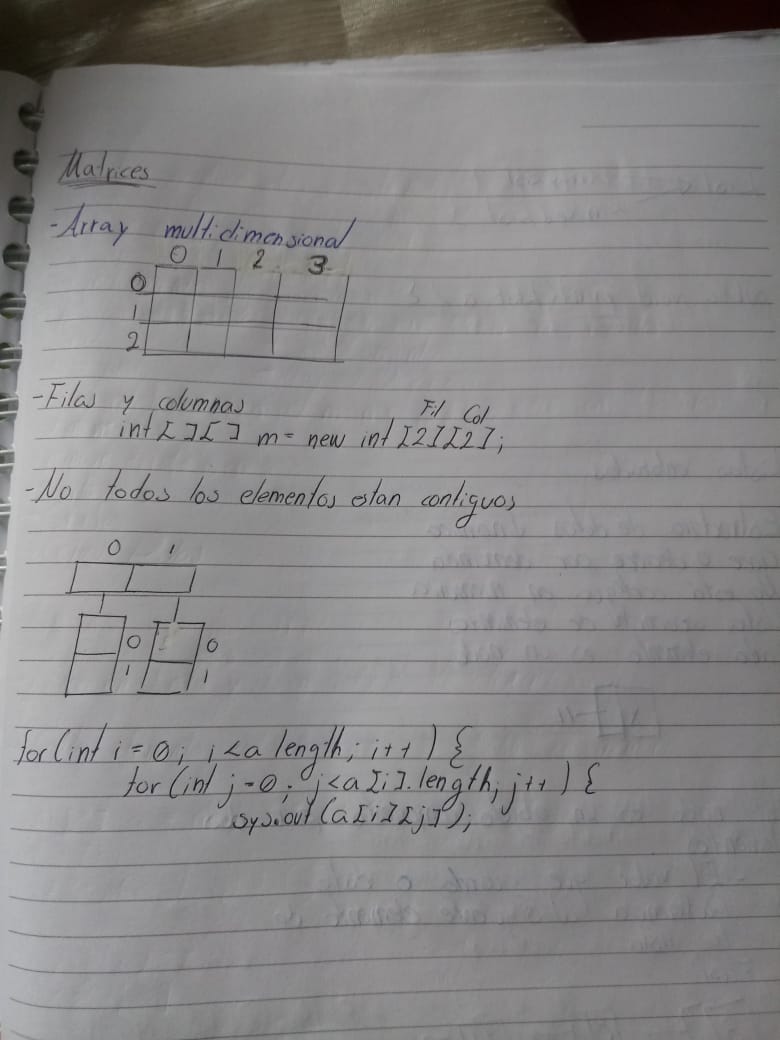 Matrices
-Array multidimensional
0 1 2 3
0
1
2
-Filas y columnas
Fil Col
int[][] m = new int[2][2];
-No todos los elementos estan contiguos
0 1
0 0
1 1
for(int i = 0; i<a length; i++) {
for(int j=0; j<a[i].length; j++) {
sys.out(a[i][j]);